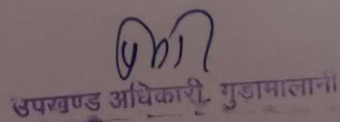 उपखण्ड अधिकारी, गुड़ामालानी